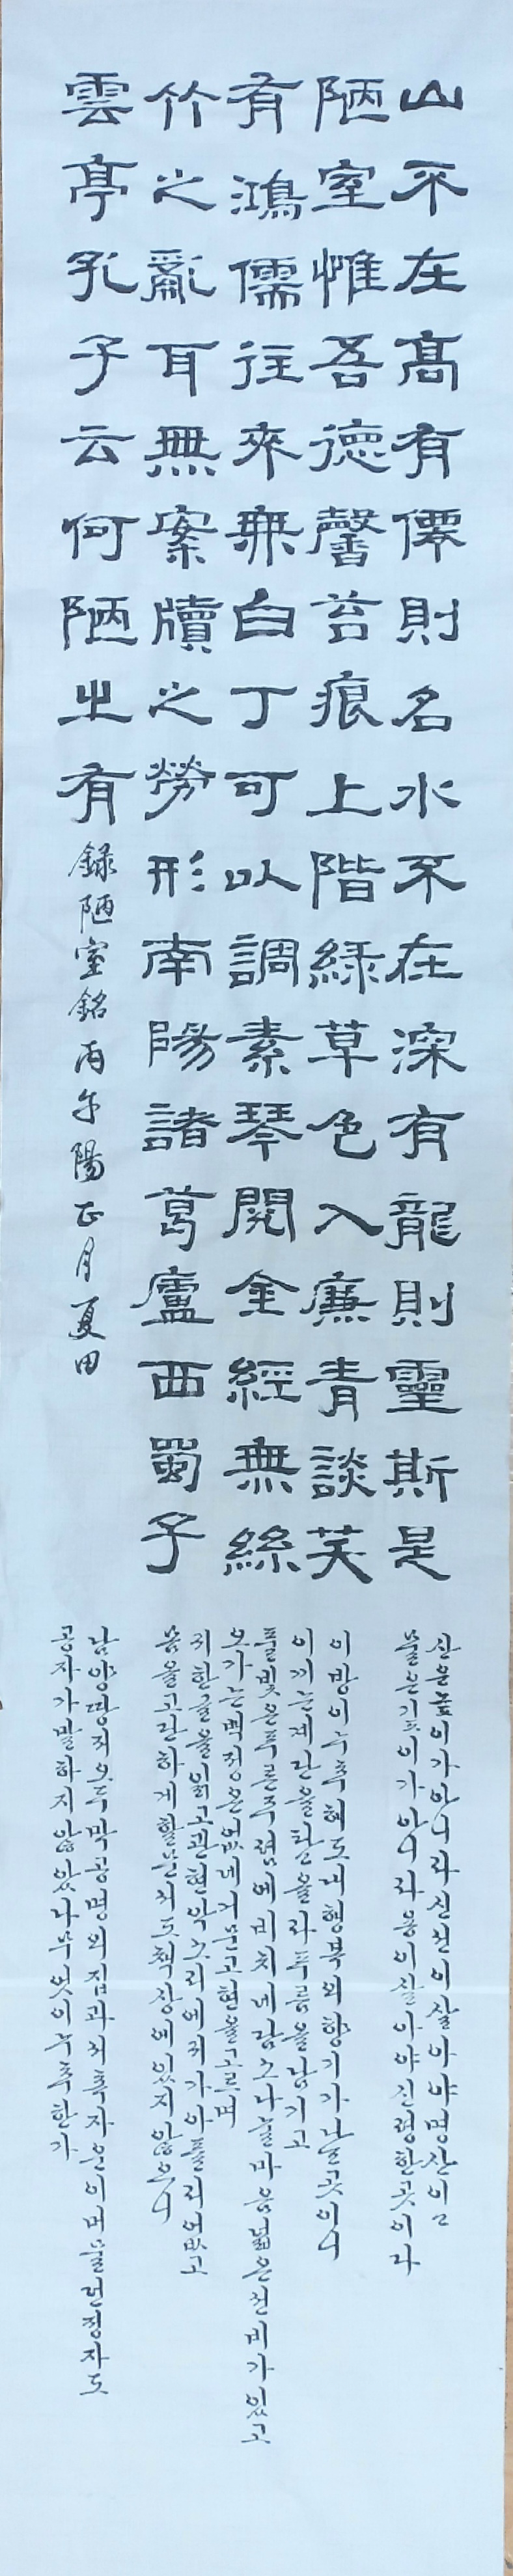 山不在高有僊則名水不在深有龍則靈斯是
陋室惟吾德馨苔痕上階綠草色入廉青談芙
有鴻儒往來無白丁可以調素琴閱金經無絲
竹之亂耳無案牘之勞形南陽諸葛廬西蜀子
雲亭孔子云何陋之有 錄陋室銘 丙午陽正月 夏田
산은높이가아니라신선이살아야명산이고
물은깊이가아니라용이살아야신령한곳이라
이방이누추해도내행복의향기가나는곳이니
이끼는계단을타고올라푸름을남기고
풀빛은푸른주렴에비치네담소나눌마음넓은선비가있고
오가는백정은없네거문고현을고르며
귀한글을읽고관현악소리에귀가아플리없고
몸을고단하게할문서도책상에있지않으니
남양땅의오두막공명의집과서촉자운이머물던정자도
공자가말하지않았나무엇이누추한가